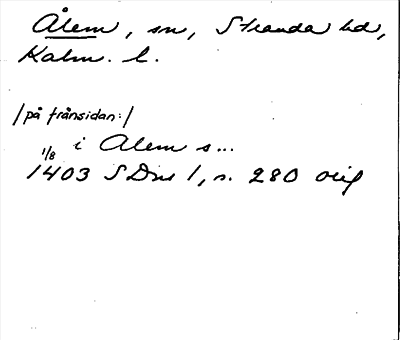 Ålem, sn, Stranda hd,
Kalm. l.
/på frånsidan:/
i Alem s...
1/8
1403 SDns 1, s. 280 orig